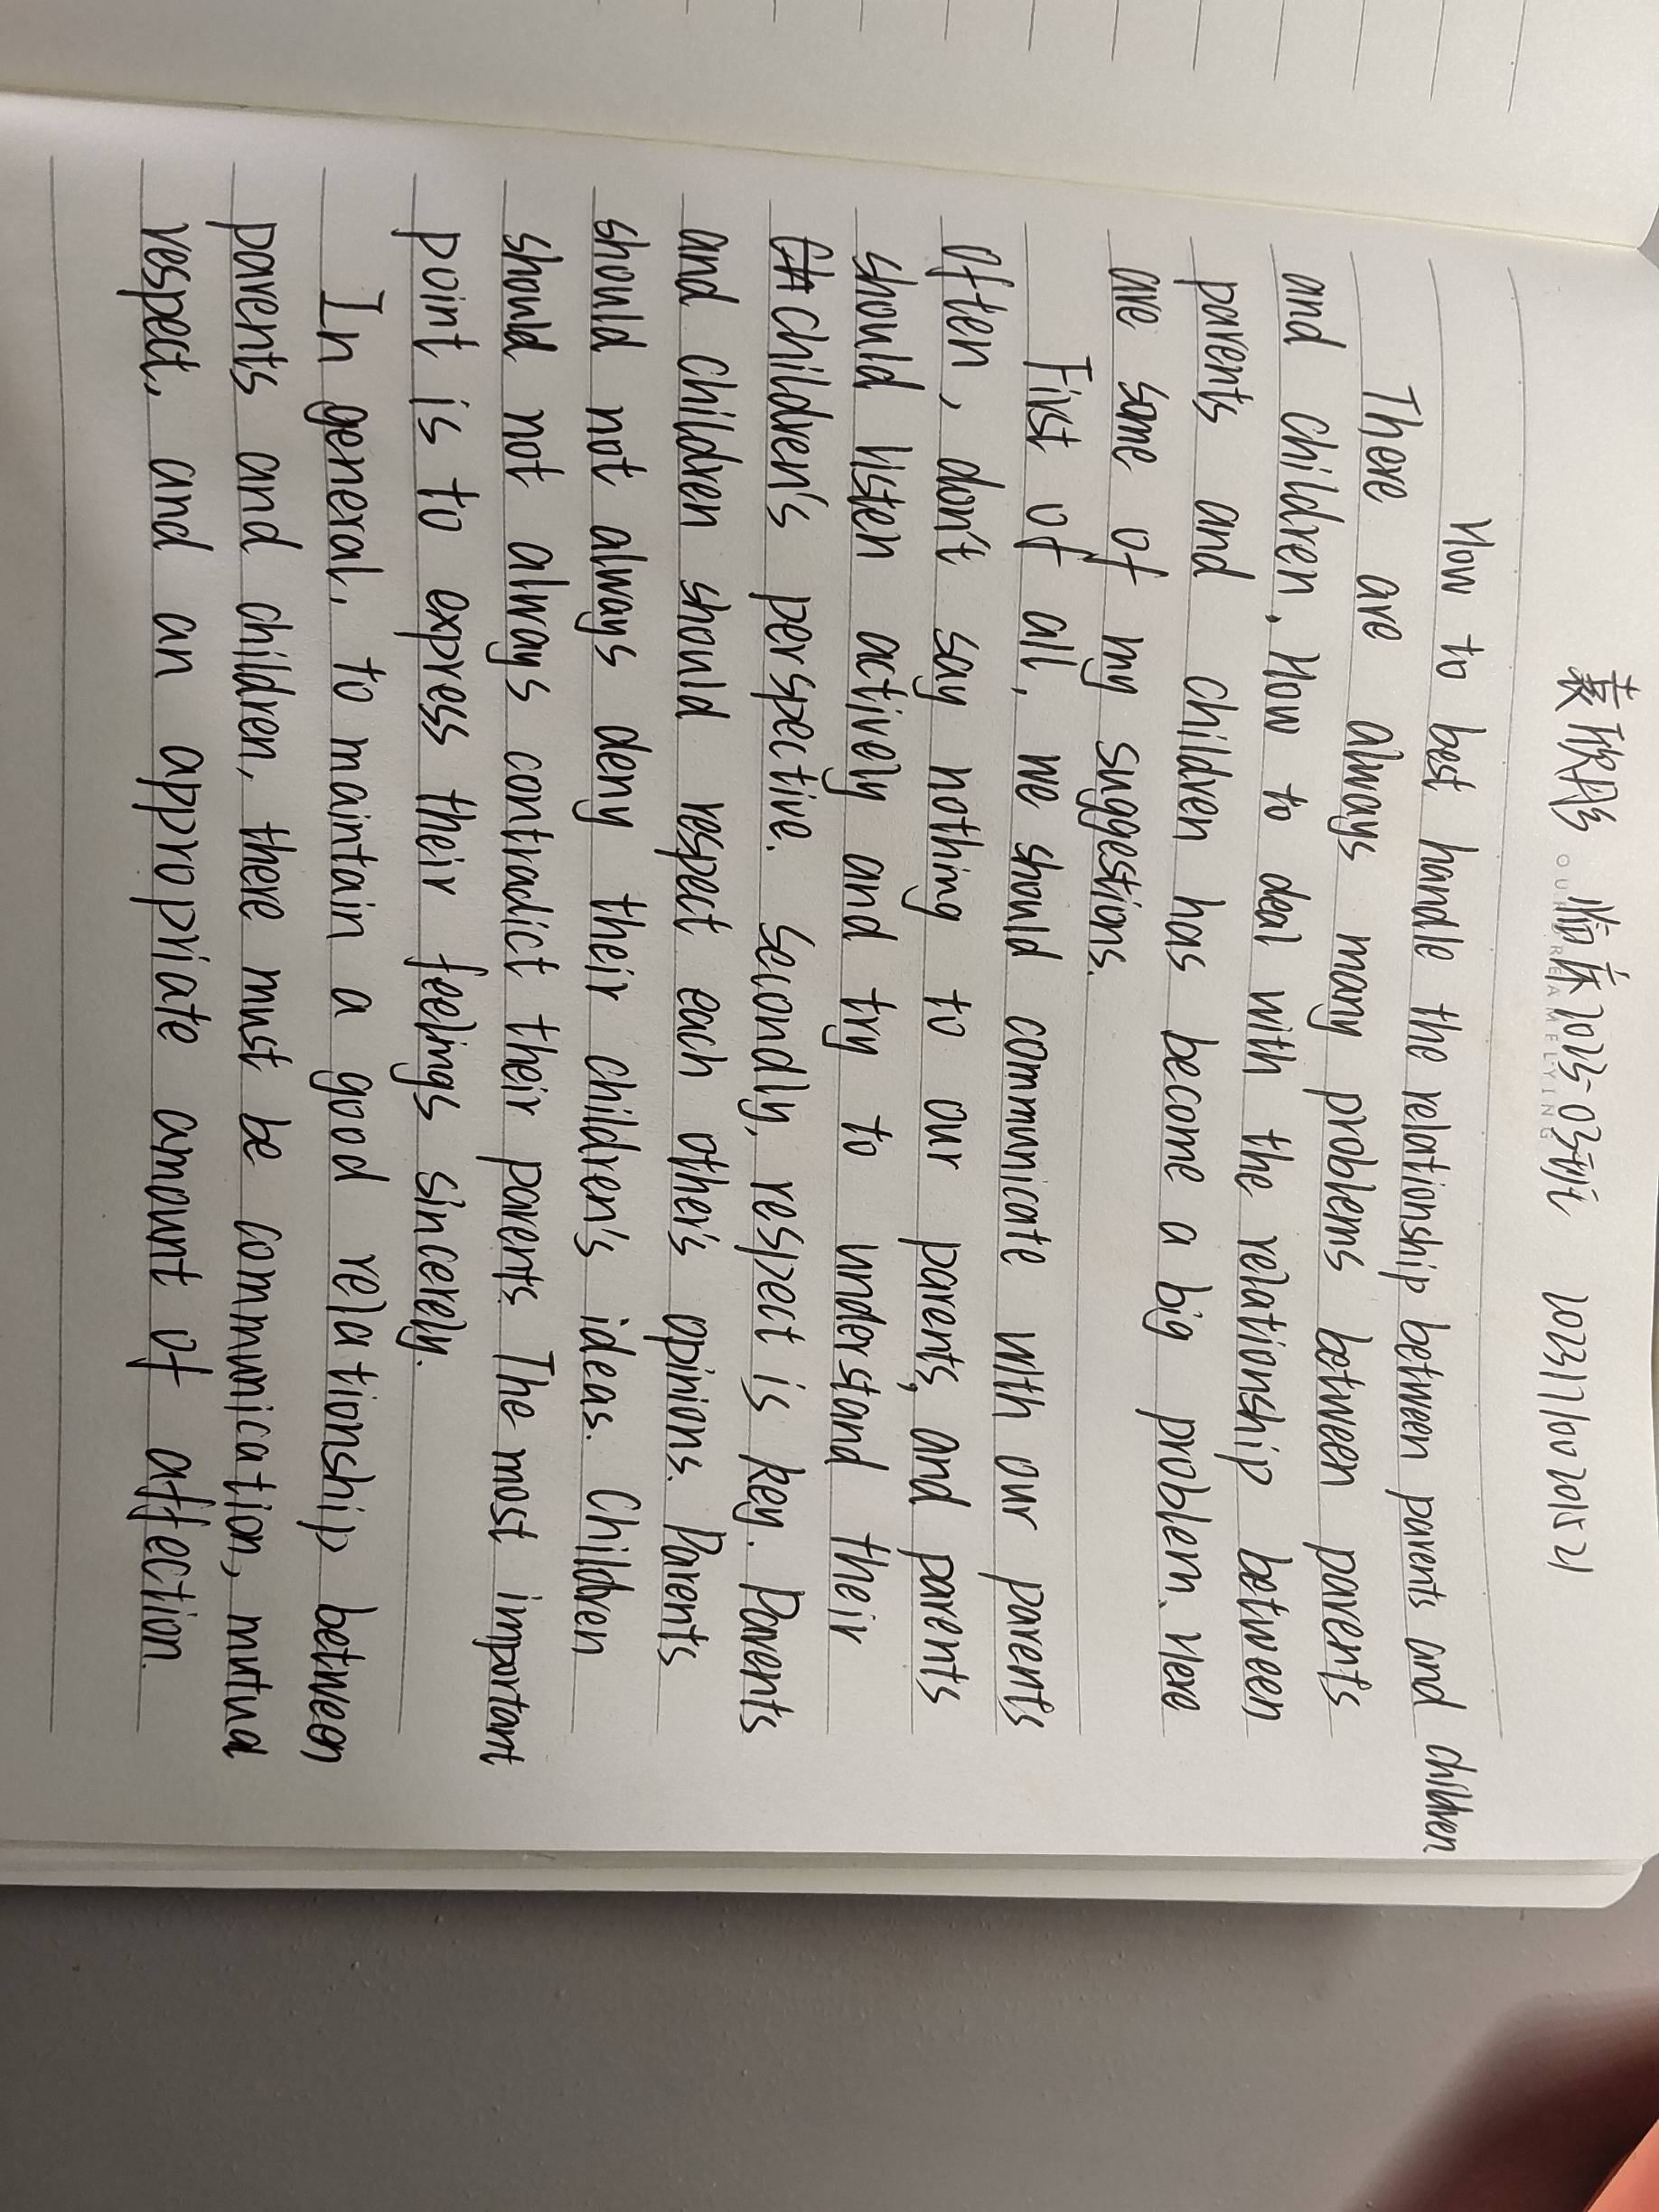 袁欣彤 临床2023-03班 2023171002015 21
OUR DREAM FLYING
How to best handle the relationship between parents and children
There are always many problems between parents
and children. How to deal with the relationship between
parents and children has become a big problem. Here
are some of my suggestions.
First of all, we should communicate with our parents
often, don't say nothing to our parents, and parents
should listen actively and try to understand their
children's perspective. Secondly, respect is key. Parents
and children should respect each other's opinions. Parents
should not always deny their children's ideas. Children
should not always contradict their parents. The most important
point is to express their feelings sincerely.
In general, to maintain a good relationship between
parents and children, there must be communication, mutua
respect, and an appropriate amount of affection.